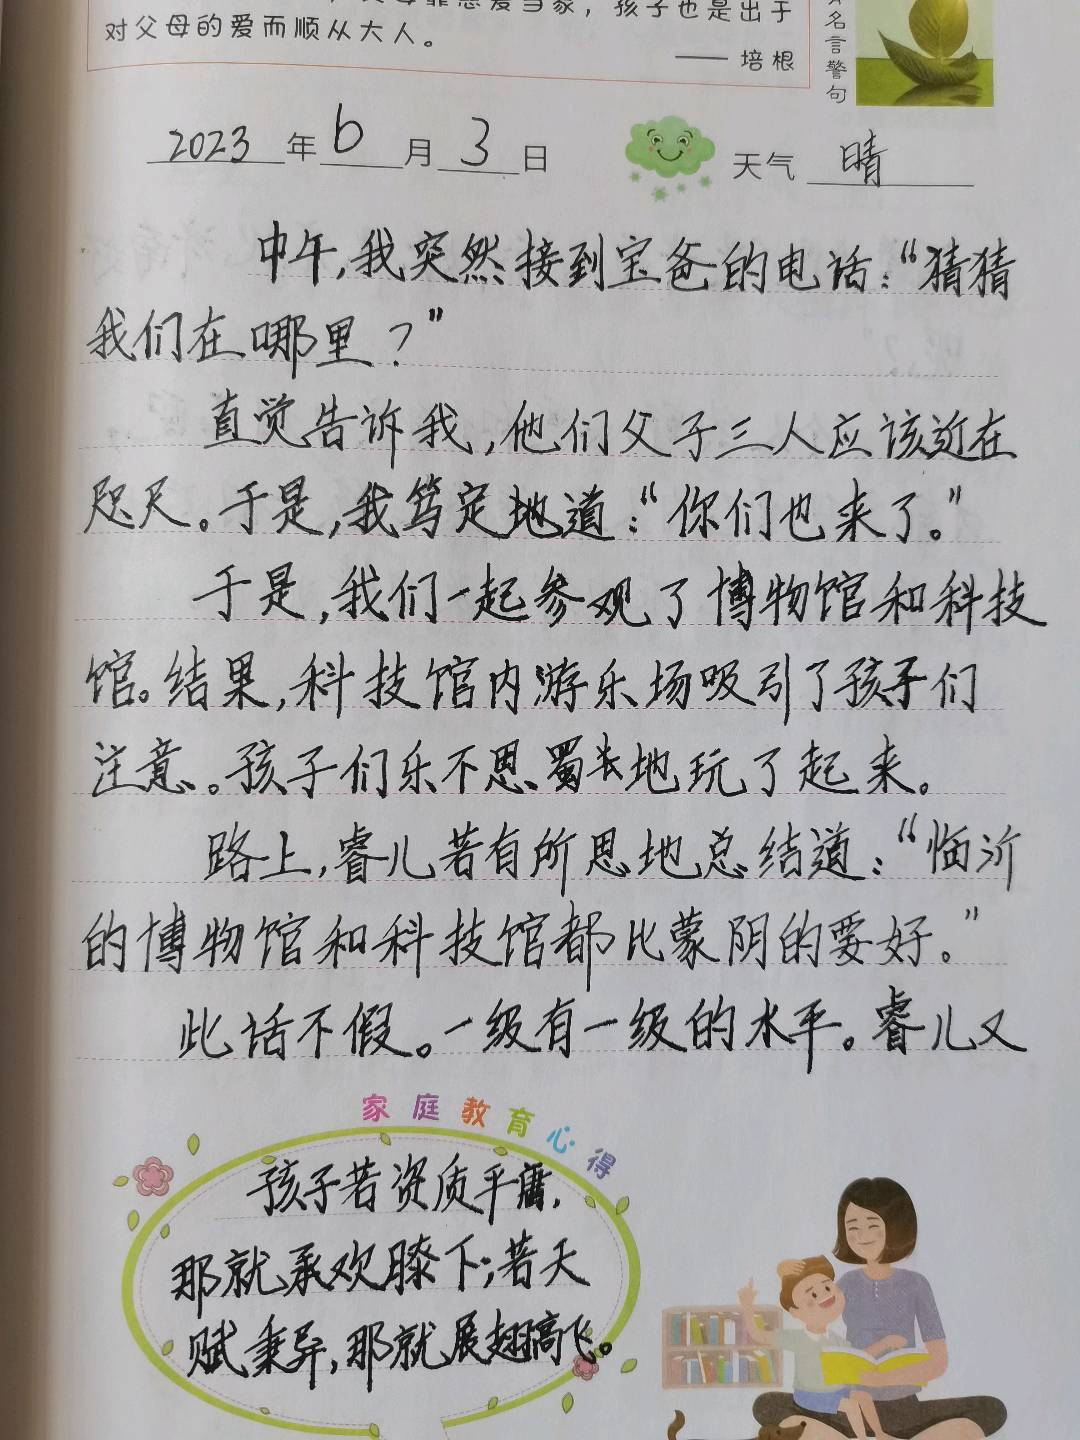 孩子也是出于
对父母的爱而顺从大人。
——培根
名言警句
2023年6月3日 天气 晴
中午,我突然接到宝爸的电话:“猜猜
我们在哪里?”
直觉告诉我,他们父子三人应该近在
咫尺。于是,我笃定地道:“你们也来了。”
于是,我们一起参观了博物馆和科技
馆。结果,科技馆内游乐场吸引了孩子们
注意。孩子们乐不思蜀地玩了起来。
路上,睿儿若有所思地总结道:“临沂
的博物馆和科技馆都比蒙阴的要好。”
此话不假。一级有一级的水平。睿儿又
家庭教育心得
孩子若资质平庸,
那就承欢膝下;若天
赋秉异,那就展翅高飞。